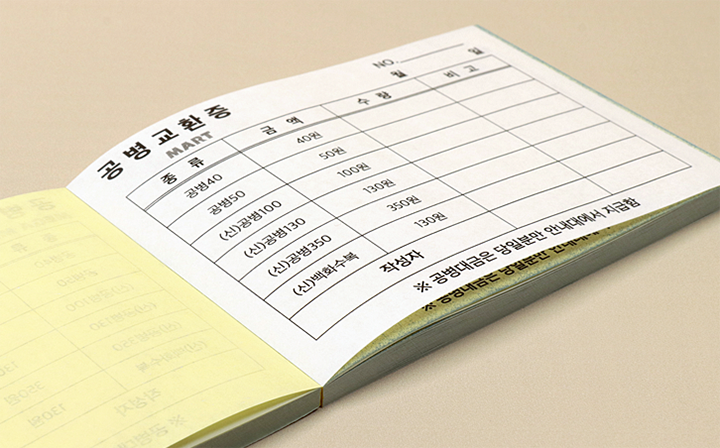 공병교환증
MART
NO.
월 일
종 류 금 액 수 량 비 고
공병40 40원
공병50 50원
(신)공병100 100원
(신)공병130 130원
(신)공병350 350원
(신)백화수복 130원
작성자
※ 공병대금은 당일분만 안내대에서 지급함
※ 공병대금은 당일분만 안내대에서